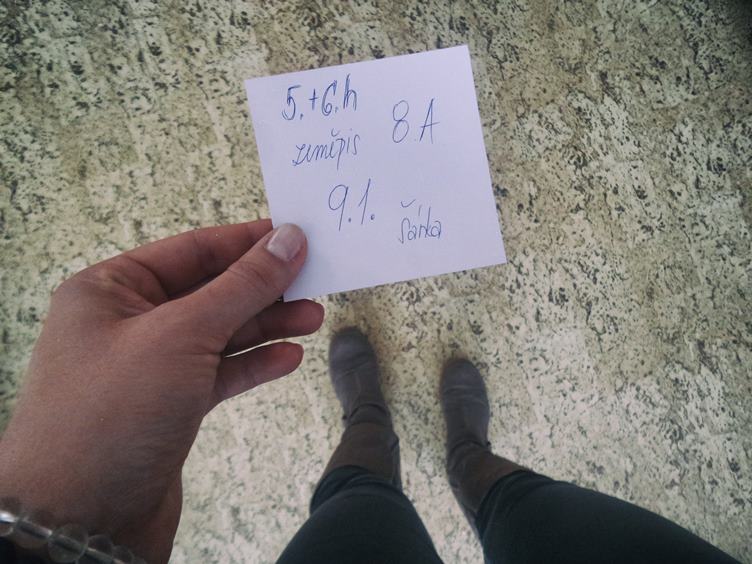 5.+6.h
8.A
zeměpis
9.1.
Šárka